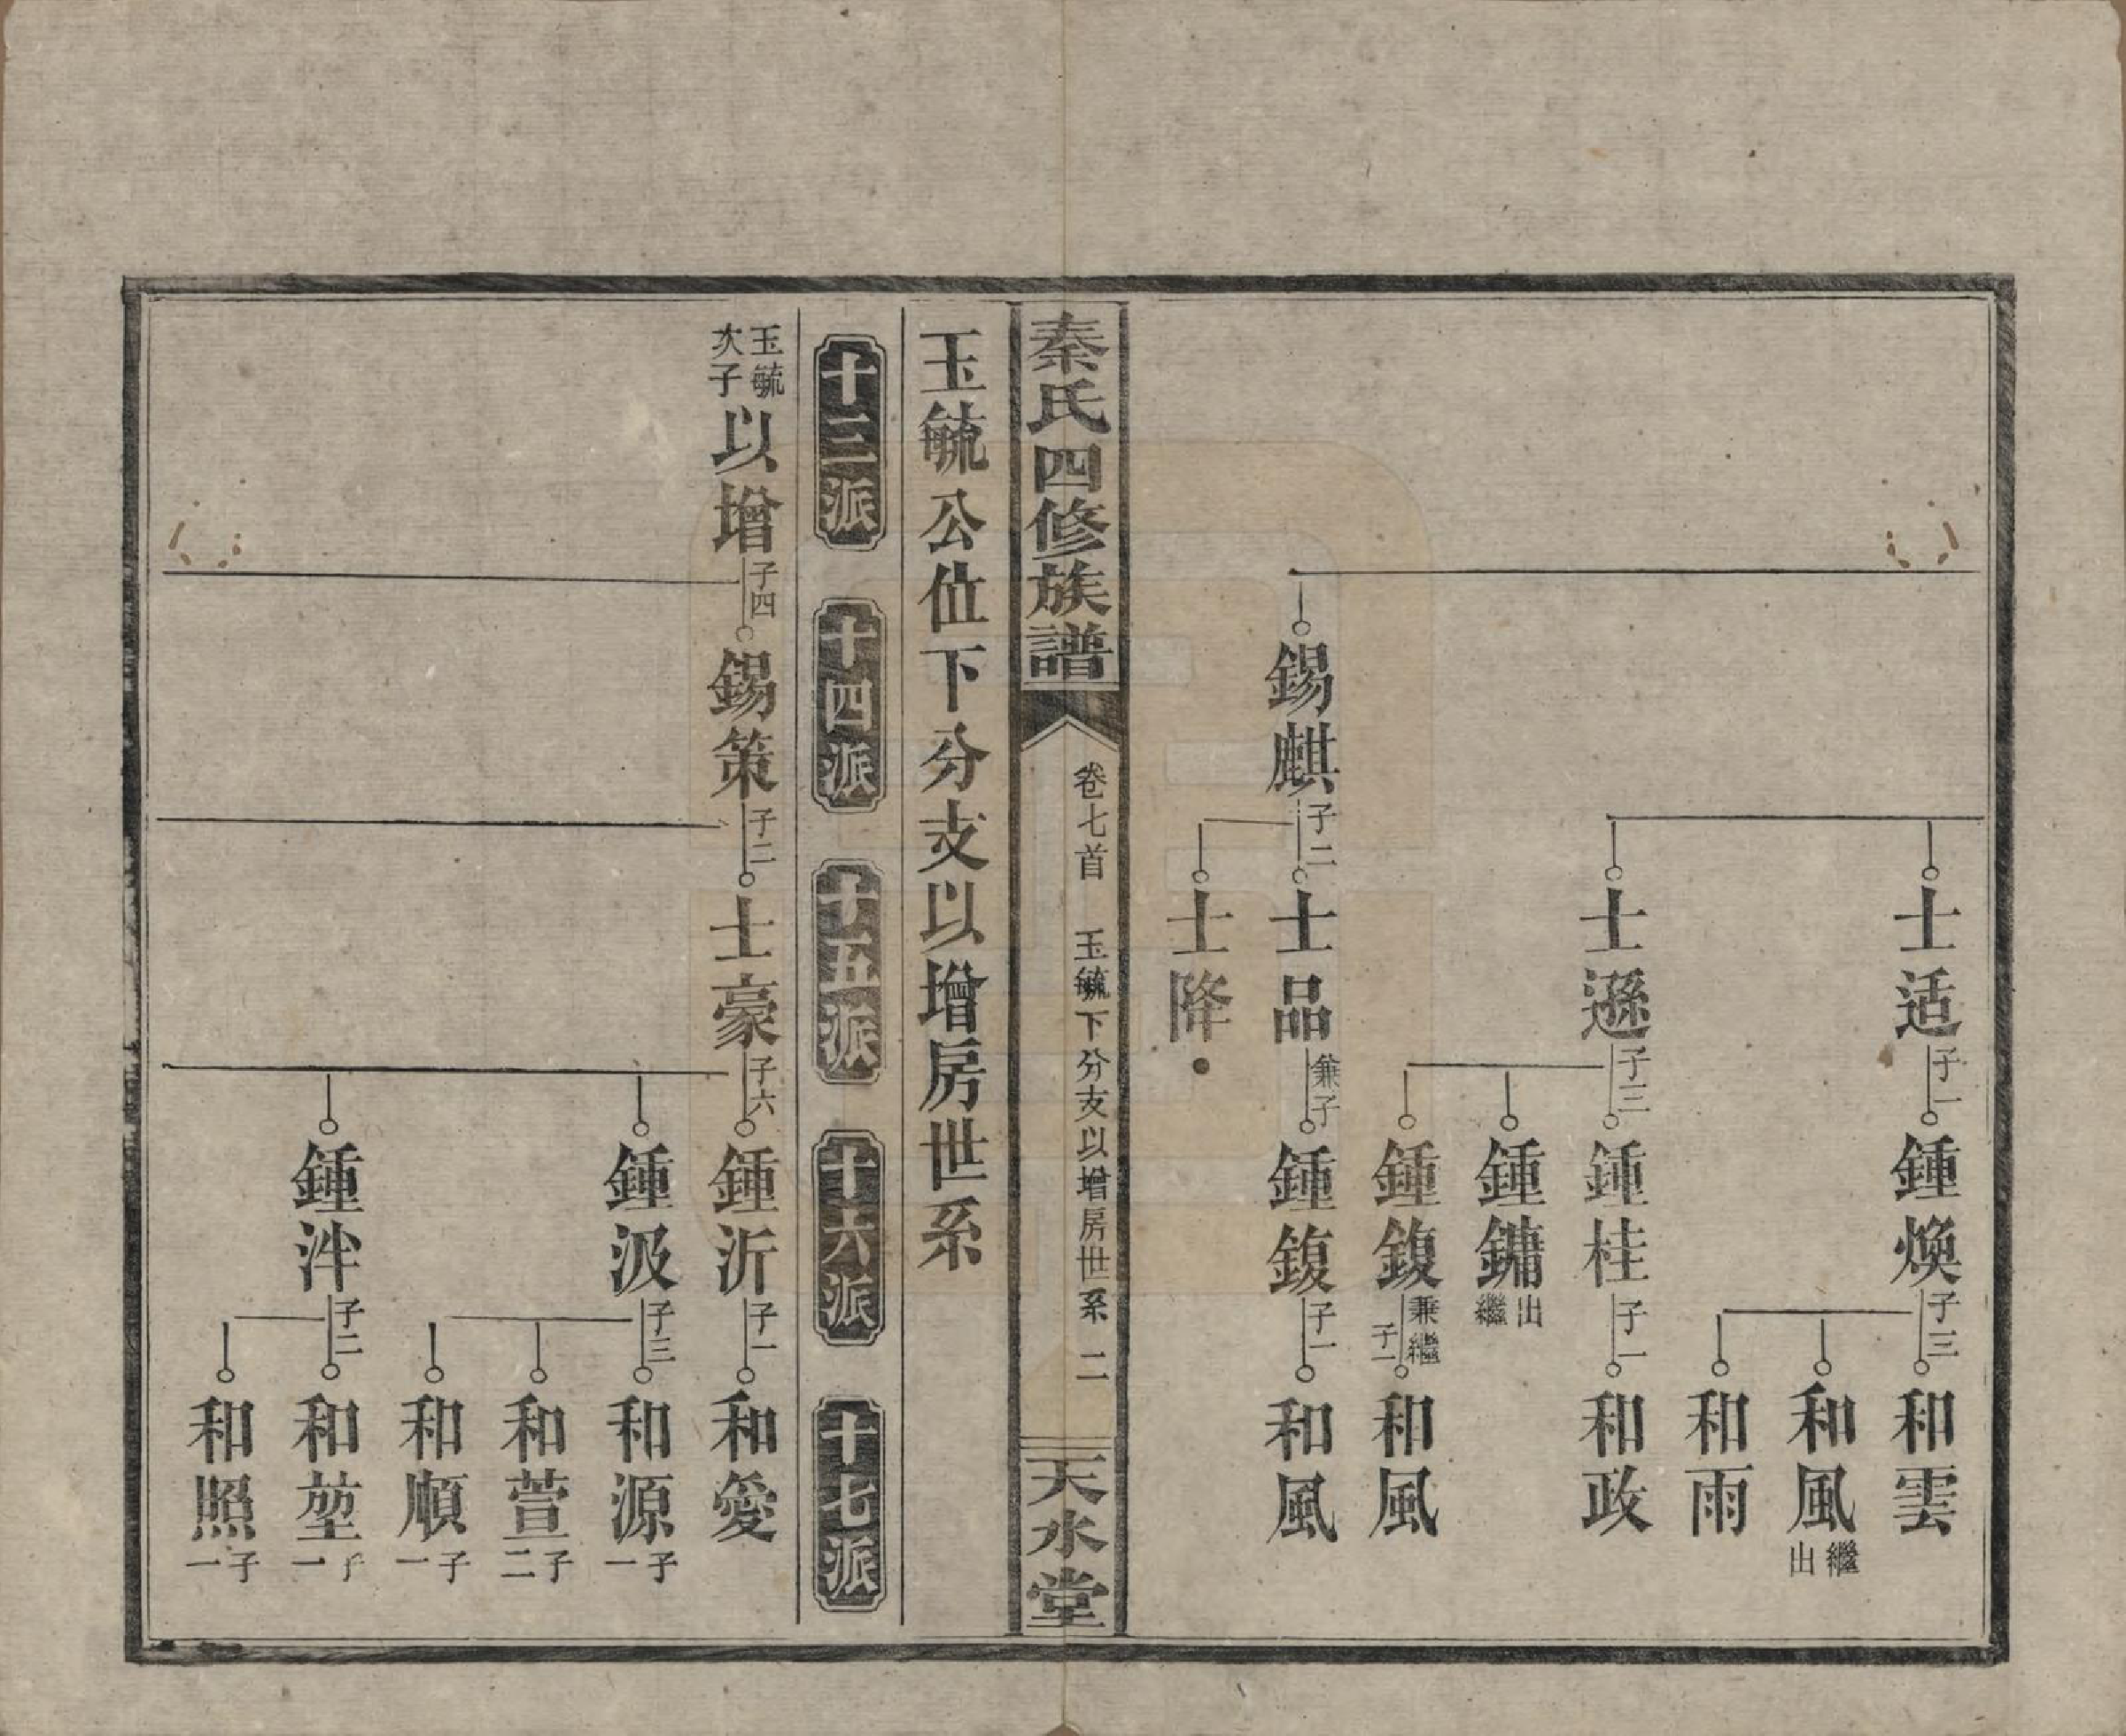 士适 子一 鍾煥 子三 和雲
和風 繼出
和雨
士遜 子二 鍾桂 子一 和政
鍾鏞 出繼
鍾鍑 兼繼子一 和風
錫麒 子二 士品 兼子 鍾鍑 子一 和風
士降
秦氏四修族譜 卷七首 玉毓下分支以增房世系 二 天水堂
玉毓公位下分支以增房世系
十三派 十四派 十五派 十六派 十七派
玉毓次子 以增 子四 錫策 子二 士豪 子六 鍾沂 子一 和愛
鍾汲 子三 和源 子一
和萱 子二
和順 子一
鍾泮 子二 和堃 子一
和照 子一